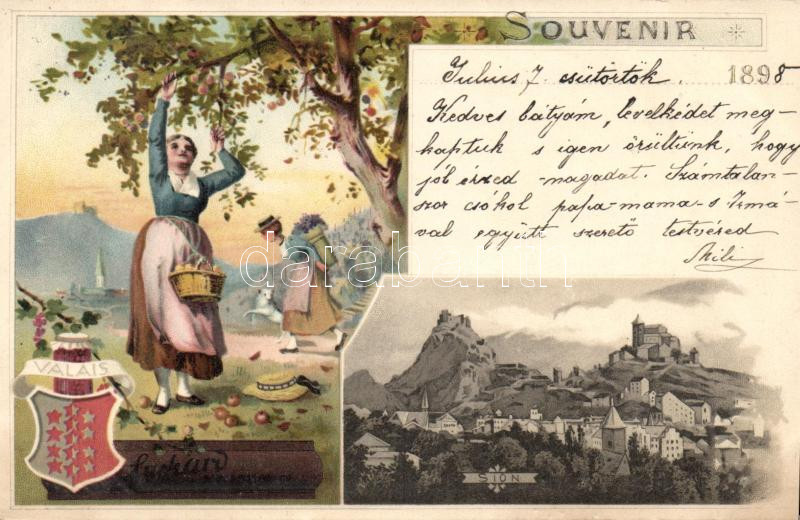 SOUVENIR
Julius 7. csütörtök. 1898
Kedves bátyám, levelkédet meg-
kaptuk s igen örültünk, hogy
jól érzed magadat. Számtalan-
szor csókol papa-mama-s Irmá-
val együtt szerető testvéred
darabanth.com
VALAIS
SION